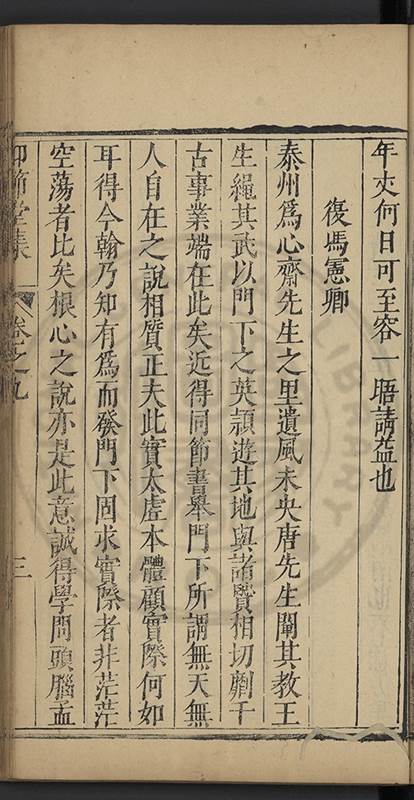 年丈何日可至容一晤請益也
復馮憲卿
泰州爲心齋先生之里遺風未央唐先生闡其教王
生繩其武以門下之英頴遊其地與諸賢相切劘千
古事業端在此矣近得同節書舉門下所謂無天無
人自在之說相質正夫此實太虛本體顧實際何如
耳得今翰乃知有爲而發門下固求實際者非茫茫
空蕩者比矣根心之說亦是此意誠得學問頭腦孟
仰節堂集 卷之九 三